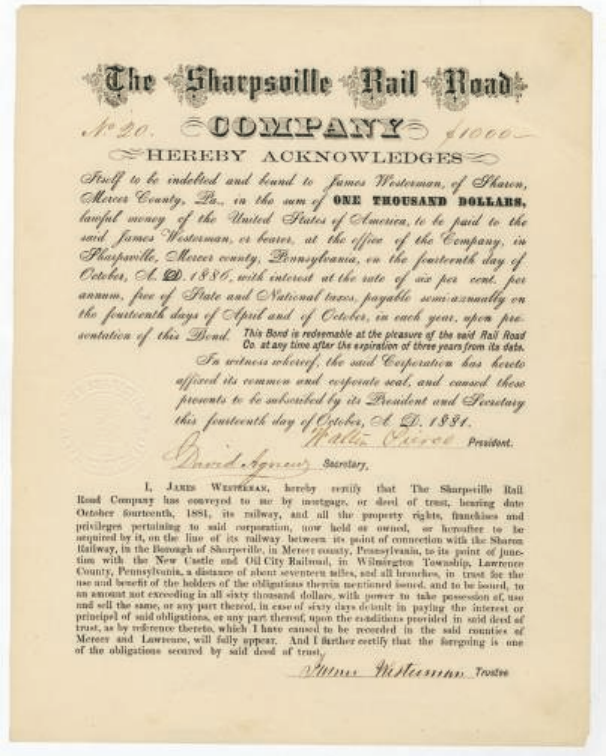 The Sharpsville Rail Road
No 20. COMPANY $1000
HEREBY ACKNOWLEDGES
Itself to be indebted and bound to James Westerman, of Sharon,
Mercer County, Pa., in the sum of ONE THOUSAND DOLLARS,
lawful money of the United States of America, to be paid to the
said James Westerman, or bearer, at the office of the Company, in
Sharpsville, Mercer county, Pennsylvania, on the fourteenth day of
October, A. D. 1886, with interest at the rate of six per cent. per
annum, free of State and National taxes, payable semi-annually on
the fourteenth days of April and of October, in each year, upon pre-
sentation of this Bond. This Bond is redeemable at the pleasure of the said Rail Road
Co. at any time after the expiration of three years from its date.
In witness whereof, the said Corporation has hereto
affixed its common and corporate seal, and caused these
presents to be subscribed by its President and Secretary
this fourteenth day of October, A. D. 1881.
Walter Pierce President.
David Agnew Secretary,
I, JAMES WESTERMAN, hereby certify that The Sharpsville Rail
Road Company has conveyed to me by mortgage, or deed of trust, bearing date
October fourteenth, 1881, its railway, and all the property rights, franchises and
privileges pertaining to said corporation, now held or owned, or hereafter to be
acquired by it, on the line of its railway between its point of connection with the Sharon
Railway, in the Borough of Sharpsville, in Mercer county, Pennsylvania, to its point of junc-
tion with the New Castle and Oil City Railroad, in Wilmington Township, Lawrence
County, Pennsylvania, a distance of about seventeen miles, and all branches, in trust for the
use and benefit of the holders of the obligations therein mentioned issued, and to be issued, to
an amount not exceeding in all sixty thousand dollars, with power to take possession of, use
and sell the same, or any part thereof, in case of sixty days default in paying the interest or
principel of said obligations, or any part thereof, upon the conditions provided in said deed of
trust, as by reference thereto, which I have caused to be recorded in the said counties of
Mercer and Lawrence, will fully appear. And I further certify that the foregoing is one
of the obligations secured by said deed of trust,
James Westerman Trustee